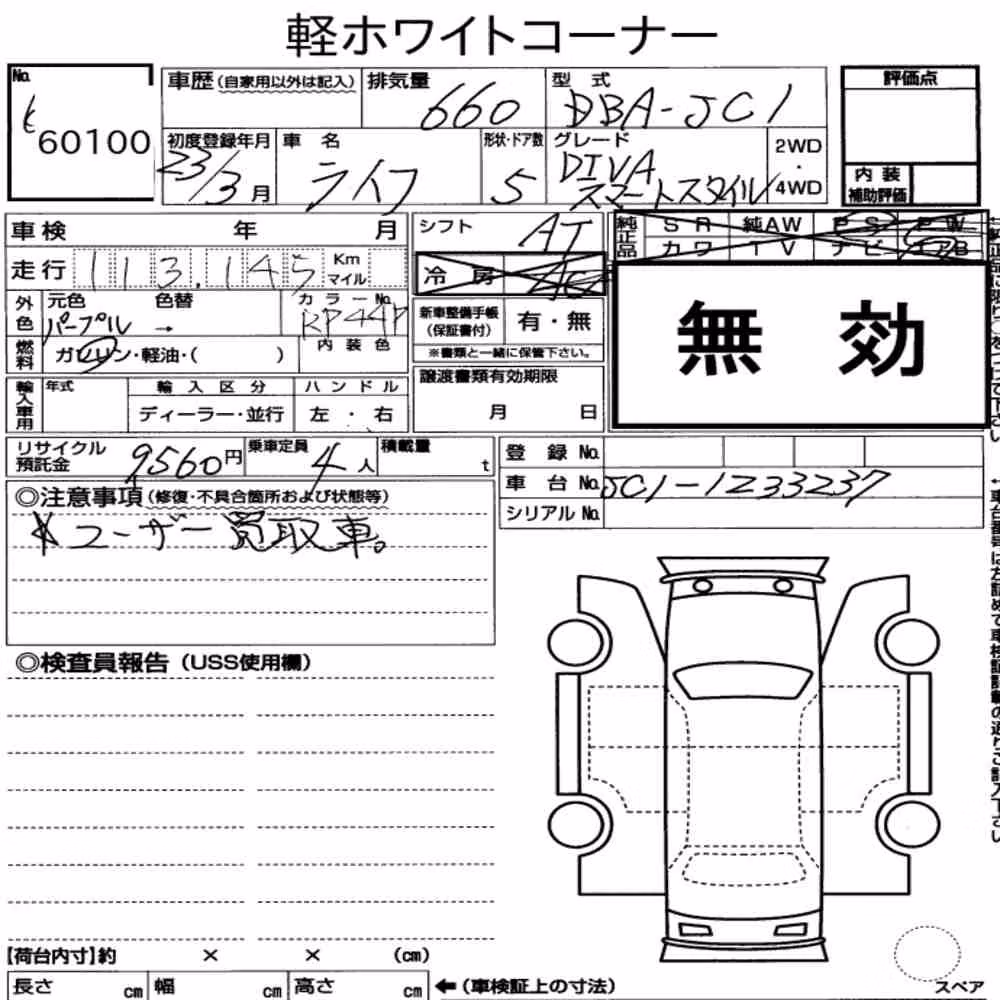 軽ホワイトコーナー
No.
と
60100
車歴(自家用以外は記入)
排気量
660
型 式
DBA-JC1
評価点
初度登録年月
23/3月
車 名
ライフ
形状・ドア数
5
グレード
DIVA
スマートスタイル
2WD
・
4WD
内 装
補助評価
車検 年 月
シフト
AT
純正品
SR 純AW PS PW
カワ TV ナビ エアB
走行 113,145 Km
マイル
冷 房 AC
外色
元色 色替
パープル →
カラーNo.
RP44P
新車整備手帳
(保証書付)
有・無
※書類と一緒に保管下さい。
無 効
燃料
ガソリン・軽油・( )
内装色
譲渡書類有効期限
月 日
輸入車用
年式
輸入区分
ハンドル
ディーラー・並行
左 ・ 右
リサイクル
預託金
9560円
乗車定員
4人
積載量
t
登 録 No.
車 台 No. JC1-1233237
シリアル No.
◎注意事項(修復・不具合箇所および状態等)
ユーザー買取車。
◎検査員報告(USS使用欄)
【荷台内寸】約 × × (cm)
長さ cm 幅 cm 高さ cm
←(車検証上の寸法)
スペア